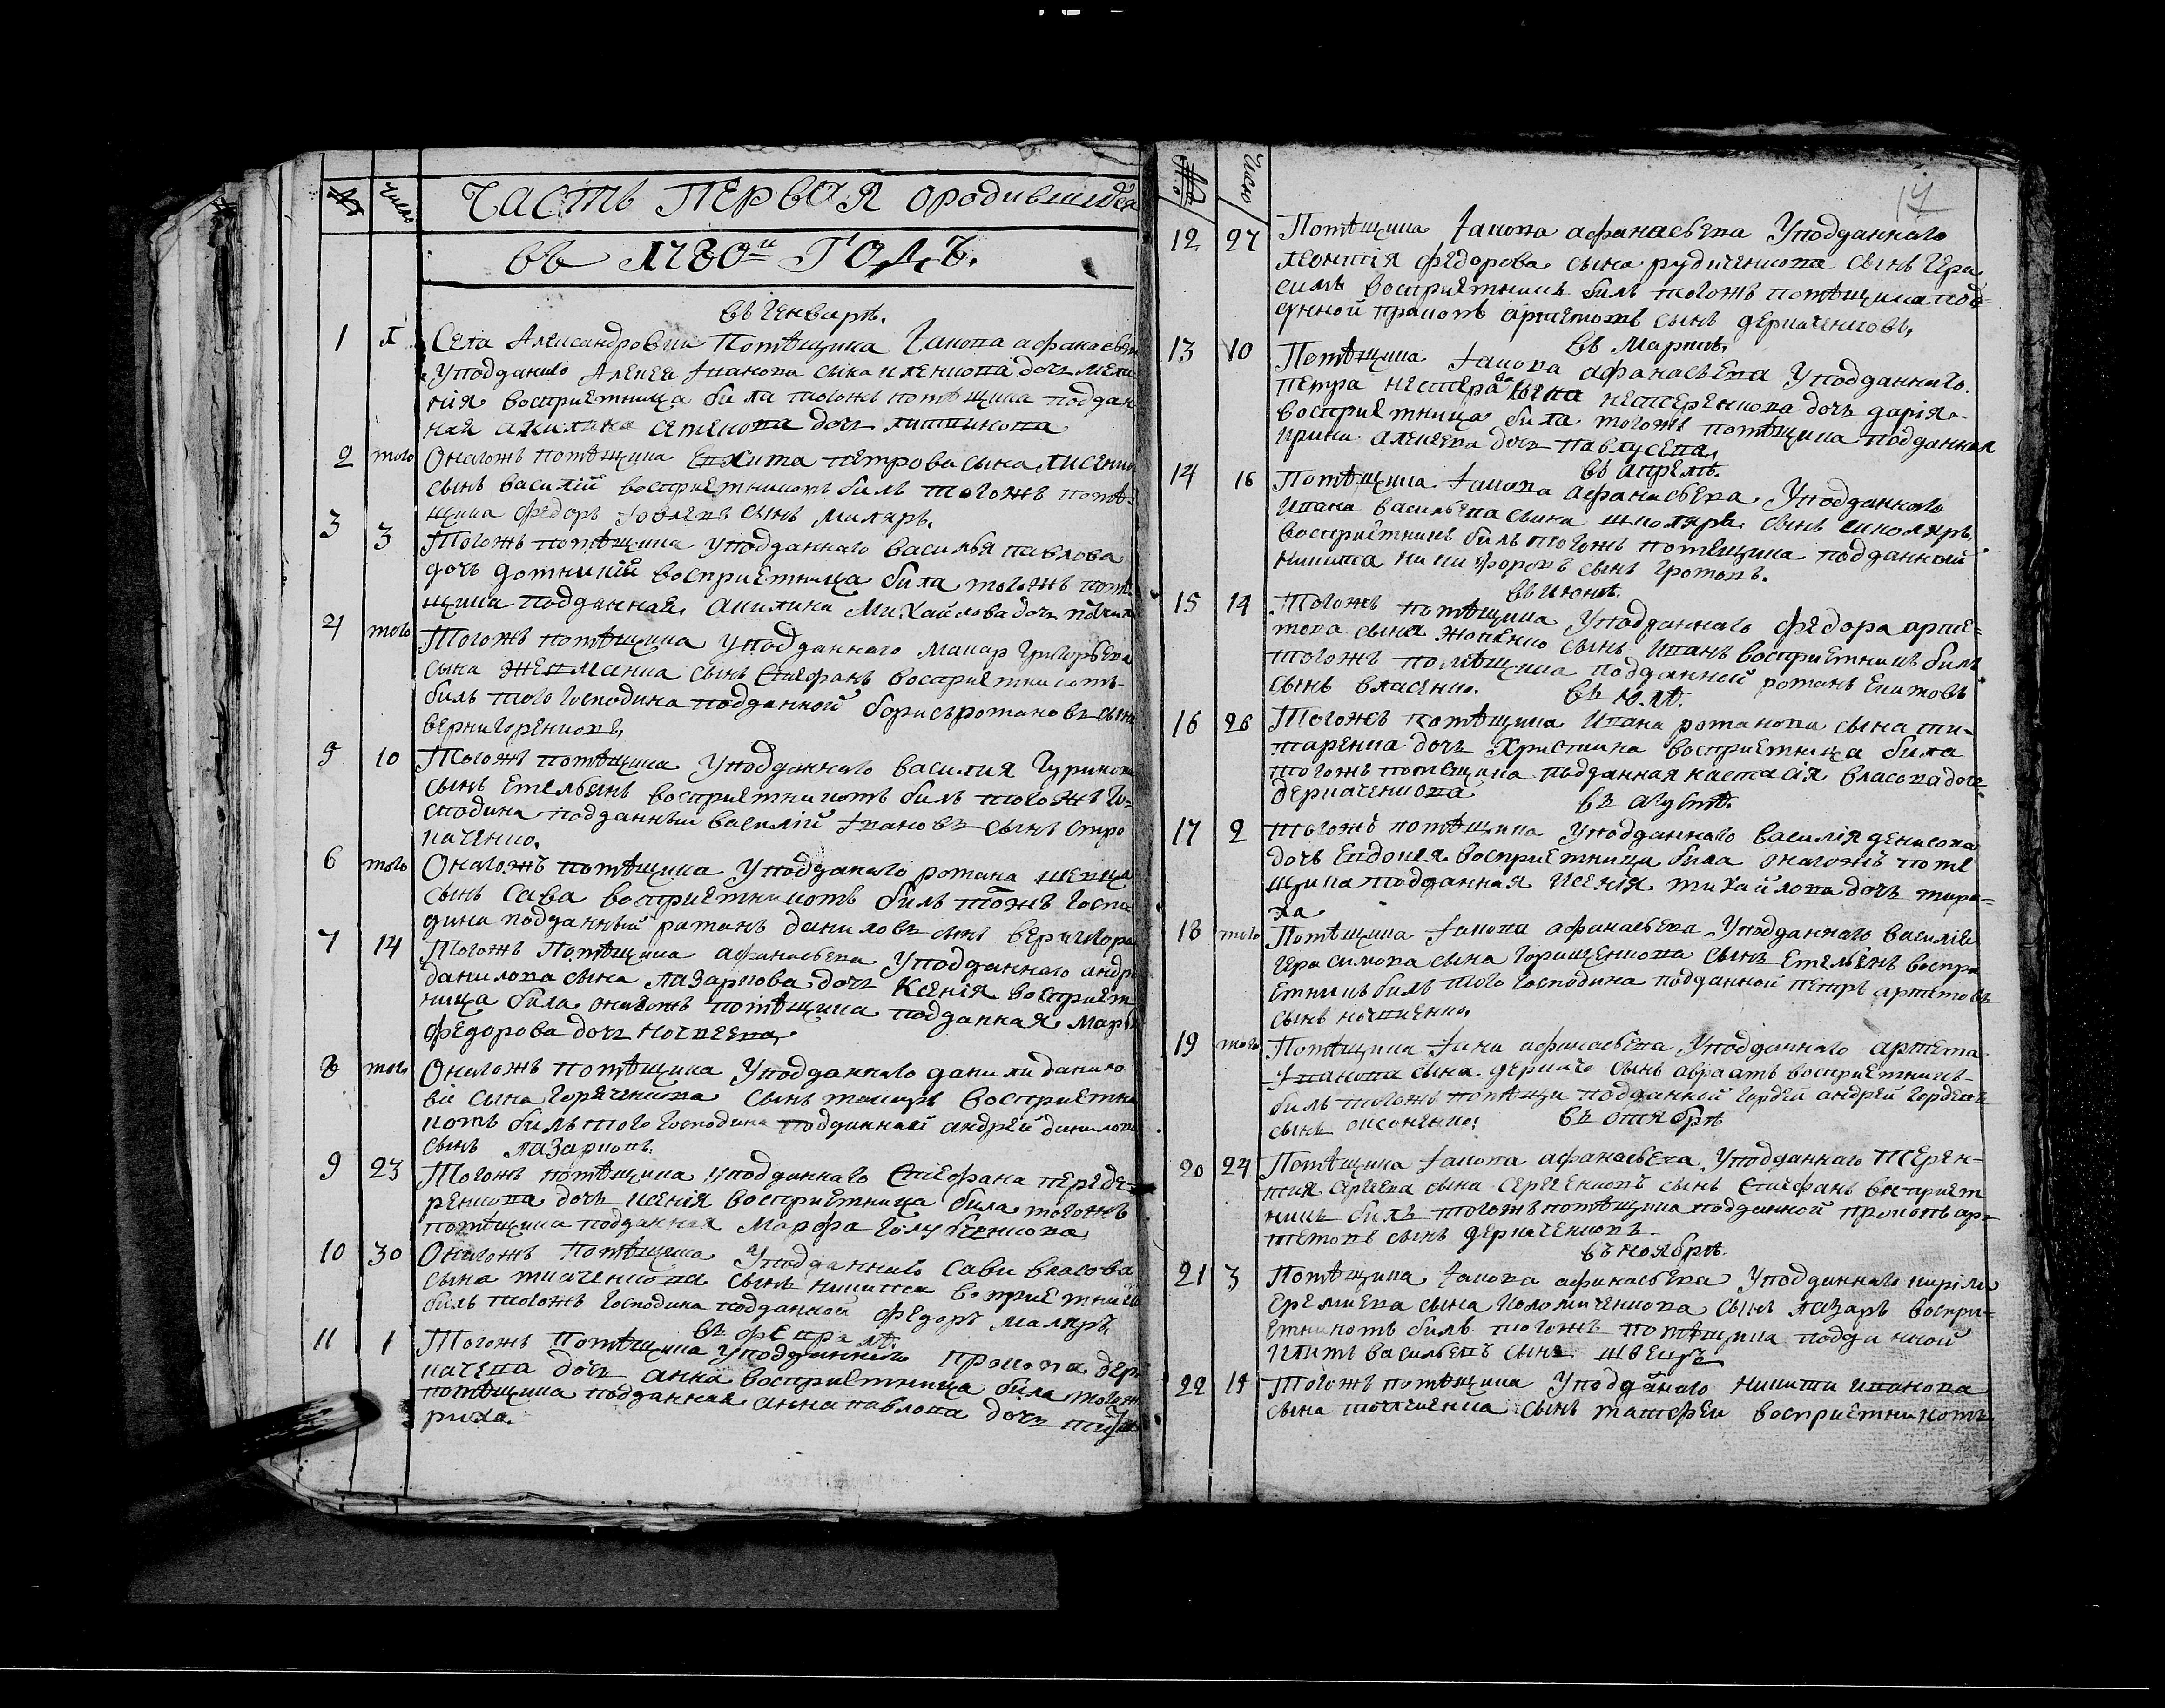 № Число Часть первая ородившихся
въ 1780м ГОДѣ.
въ генваре.
1 1 Села Александровки Помѣщика Iакова афанасьева
Уподданаго Алексея Iванова сына иленкова дочь мела
нія восприемница била тогожъ помѣщика поддан
ная акилина семенова дочь литвинова
2 того Оногожъ помѣщика Никита петрова сына лисенко
сынъ василій восприемникомъ билъ тогожъ помѣ-
щика федоръ Iовлевъ сынъ маляръ.
3 3 Тогожъ помѣщика уподданнаго василья павлова
дочь домникій восприемница била тогожъ помѣ
щика подданная акилина Михайлова дочь
4 того Тогожъ помѣщика уподданнаго макар григорьева
сына жевманка сынъ Стефанъ восприемникомъ
билъ того господина подданной борисъ романовъ сынъ
вернигоренковъ,
5 10 Тогожъ помѣщика Уподданнаго василия Гуринова
сынъ Емельянъ восприемникомъ билъ тогожъ го-
сподина подданный василій Iвановъ сынъ стро
каченко.
6 того Оногожъ помѣщика Уподданаго романа шевца
сынъ Сава восприемникомъ билъ тожъ госпо
дина подданный романъ даниловъ сынъ вернигора
7 14 Тогожъ Помѣщика афанасьева Уподданнаго андре
данилова сына лазаркова дочь Ксенія восприем
ница била оногожъ помѣщика подданная марфа
федорова дочь
8 того Оногожъ помѣщика Уподданнаго данили данило
ві сына горяченкова сынъ макаръ восприемни
комъ билъ того господина подданный андрей данилова
сынъ лазарковъ.
9 23 Тогожъ помѣщика уподданнаго Стефана переде-
ренкова дочь ксенія восприемница била тогожъ
помѣщика подданная марфа голубченкова
10 30 Оногожъ помѣщика Уподданнаго сави власова
сына ткаченкова сынъ никита восприемникъ
билъ тогожъ господина подданной федоръ маляръ
въ февралѣ.
11 1 Тогожъ помѣщика Уподданнаго прокопа дер
качева дочь анна восприемница била тогожъ
помѣщика подданная анна павлова дочь
риха.
№ Число
17
12 27 Помѣщика Iакова афанасьева Уподданнаго
леонтія федорова сына рудиченкова сынъ гера
симъ восприемникъ билъ тогожъ помѣщика под-
данной прокопъ артемовъ сынъ деркаченковъ,
въ мартѣ.
13 10 Помѣщика Iакова афанасьева Уподданнаго
петра нестера сына нестеренкова дочь дарія
восприемница била тогожъ помѣщика подданная
ирина алексеева дочь павлусева,
въ апрелѣ.
14 16 Помѣщика Iакова афанасьева Уподданнаго
Ивана васильева сына школяра сынъ школяръ,
восприемникъ билъ тогожъ помещика подданной
никита никифоровъ сынъ громовъ.
въ июнѣ.
15 14 Тогожъ помѣщика Уподданнаго федора арте-
мова сына сынъ Иванъ восприемникъ билъ
тогожъ помѣщика подданной романъ Екимовъ
сынъ власенко.
въ ю.лѣ.
16 26 Тогожъ помѣщика Ивана романова сына ти-
таренка дочь Христина восприемница била
тогожъ помещика подданная настасія власова дочь
деркаченкова
въ августѣ.
17 2 Тогожъ помѣщика Уподданнаго василія денисова
дочь Евдокея восприемница била оногожъ поме
щика подданная ксенія михайлова дочь мира-
ха
18 того Помѣщика Iакова афанасьева Уподданнаго василія
герасимова сына горященкова сынъ Емельянъ воспри
емникъ билъ того господина подданной петръ артемовъ
сынъ
19 того Помѣщика Iака афанасьева Уподданнаго артема
Iванова сына деркаго сынъ авраамъ восприемникъ
билъ тогожъ помѣщи подданной гордей андрей гордевъ
сынъ оксоненко:
въ октябрѣ
20 24 Помѣщика Iакова афанасьева, Уподданнаго терен-
тия сергеева сына сергеенковъ сынъ Стефанъ восприем
никъ билъ тогожъ помѣщика подданной прокопъ ар-
темовъ сынъ деркаченковъ.
въ ноябрѣ.
21 3 Помѣщика Iакова афанасьева Уподданнаго кирили
еремиева сына коломиченкова сынъ лазаръ воспри-
емникомъ билъ тогожъ помѣщика подданной
игнатъ васильевъ сынъ швецъ
22 14 Тогожъ помѣщика Уподданаго никити иванова
сына сынъ матфеи восприемникомъ